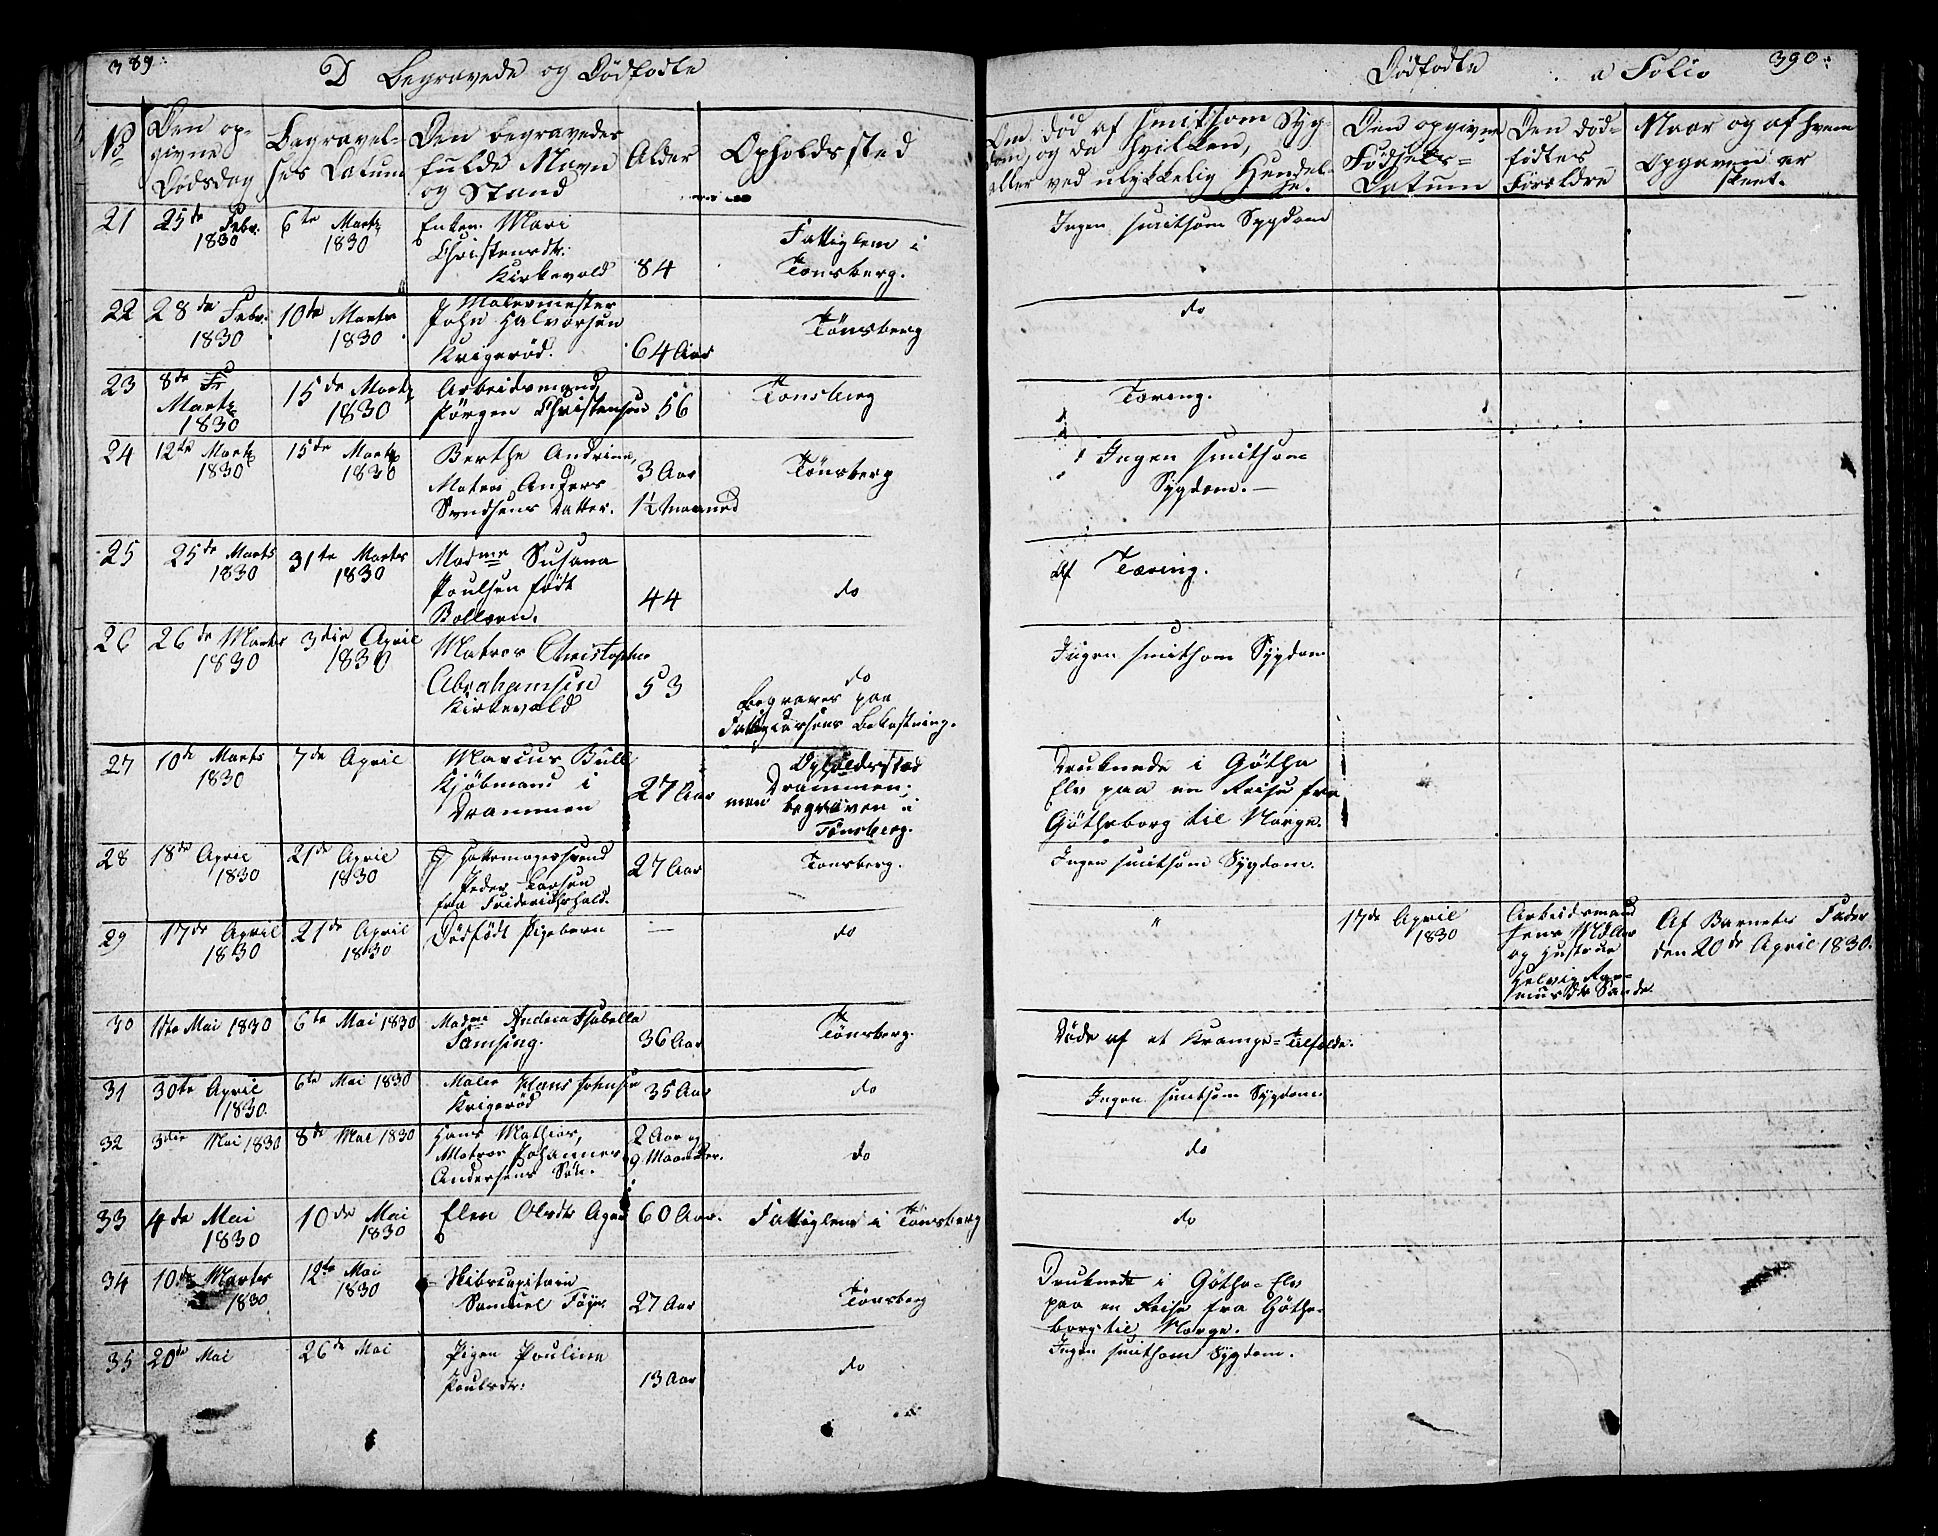 389.
D Begravede og Dödfødte
No
Den opgivne Dödsdag
Begravelses Datum
Den begravedes fulde Navn og Stand
Alder
Opholdssted
21 25de Febr. 1830 6te Martz 1830 Enken Mari Christensdtr: Kirkevold 84 Fattiglem i Tönsberg.
22 28de Febr. 1830 10de Marts 1830 Malermester John Halvorsen Krigeröd. 64 Aar Tönsberg
23 8de Martz 1830 15de Martz 1830 Arbeidsmand Jörgen Christensen 56 Tonsberg
24 12te Martz 1830 15de Martz 1830 Berthe Andrine, Matros Anders Svendsens Datter. 3 Aar 1½ Maaned Tönsberg
25 25de Marts 1830 31te Marts 1830 Madme Susana Poulsen födt 44 do
26 26de Marts 1830 3die April 1830 Matros Christopher Abrahamsen Kirkevold 53 do Begraves paa Fattigcassens Bekostning.
27 10de Marts 1830 7de April Marcus Bull Kjöbmand i Drammen 27 Aar Opholdssted Drammen; men begraven i Tönsberg.
28 18de April 1830 21de April 1830 Hattemagersvend Peder Larsen fra Friderichshald. 27 Aar Tonsberg.
29 17de April 1830 21de April 1830 Dödfödt Pigebarn — do
30 1ste Mai 1830 6te Mai 1830 Madme Andrea Isabella Samsing. 36 Aar Tönsberg.
31 30te April 1830 6te Mai 1830 Maler Hans Johnsen Krigeröd 35 Aar do
32 3die Mai 1830 8de Mai 1830 Hans Mathias, Matros Johannes Andersens Sön. 2 Aar og 9 Maaneder. do
33 4de Mai 1830 10de Mai 1830 Elen Olsdtr 60 Aar. Fattiglem i Tönsberg
34 10de Martz 1830 12te Mai 1830 Skibscapitain Samuel Föyn. 27 Aar Tönsberg
35 20de Mai 26de Mai Pigen Pouline Poulsdtr: 13 Aar do
Dödfødte a Folio 390:
Om död af smitsom Sygdom, og da hvilken, eller ved ulykkelig Hendelse.
Den opgivne Födsels-Datum
Den dödfödtes Forældre
Naar og af hvem Opgaven er skeet.
Ingen smitsom Sygdom
do
Tæring.
Ingen smitsom Sygdom.—
af Tæring.
Ingen smitsom Sygdom
Druknede i Götha Elv paa en Reise fra Götheborg til Norge.
Ingen smitsom Sygdom.
" 17de April 1830 Arbeidsmand Jens Möller og Hustrue Helvig Rasmusdtr Sande. Af Barnets Fader den 20de April 1830.
Döde af et Krampe-Tilfælde.
Ingen smitsom Sygdom.
do
do
Druknede i Götha-Elv paa en Reise fra Götheborg til Norge.
Ingen smitsom Sygdom.